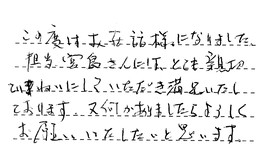 この度はお世話様になりました
担当宮島さんには、とても親切
ていねいにしていただき満足いたし
ております 又何かありましたらよろしく
お願いいたしたいと思います